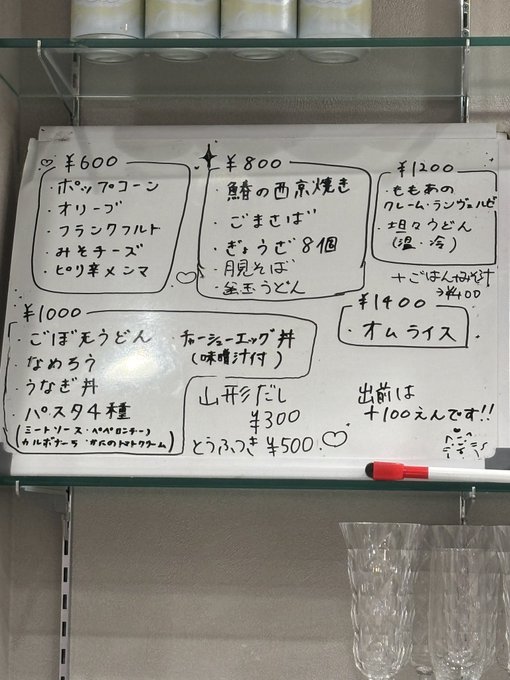 ¥600
・ポップコーン
・オリーブ
・フランクフルト
・みそチーズ
・ピリ辛メンマ
¥800
・鰆の西京焼き
・ごまさば
・ぎょうざ8個
・月見そば
・釜玉うどん
¥1200
・ももあの
クレーム・ランヴェルゼ
・坦々うどん
(温・冷)
+ごはんみそ汁
→¥400
¥1400
・オムライス
¥1000
・ごぼ天うどん
・なめろう
・うなぎ丼
・パスタ4種
(ミートソース・ペペロンチーノ
カルボナーラ・かにのトマトクリーム)
・チャーシューエッグ丼
(味噌汁付)
山形だし
¥300
とうふつき ¥500
出前は
+100えんです!!